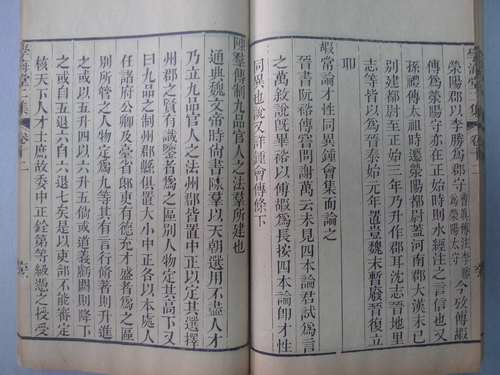 學海堂二集 卷十二
滎陽郡以李勝為郡守曹真傳注李勝為滎陽太守今攷傅嘏
傳為滎陽守亦在正始時則水經注之言信也又
孫禮傳太祖時遷滎陽都尉蓋河南郡大漢末已
別建都尉至正始三年乃升作郡耳沈志晉地里
志等皆以為晉泰始元年置豈魏末暫廢晉復立
耶
嘏常論才性同異鍾會集而論之
晉書阮裕傳嘗問謝萬云未見四本論君試為言
之萬敘說既畢裕以傅嘏為長按四本論即才性
同異也說又詳鍾會傳條下
陳羣傳制九品官人之法羣所建也
通典魏文帝時尚書陳羣以天朝選用不盡人才
乃立九品官人之法州郡皆置中正以定其選擇
州郡之賢有識鑒者為之區別人物定其高下又
曰九品之制州郡縣俱置大小中正各以本處人
在諸府公卿及臺省郎吏有德充才盛者為之區
別所管之人物定為九等其有言行修著則升進
之或以五升四以六升五倘或道義虧闕則降下
之或自五退六自六退七矣是以吏部不能審定
核天下人才士庶故委中正銓第等級憑之授受
學海堂二集 卷十二